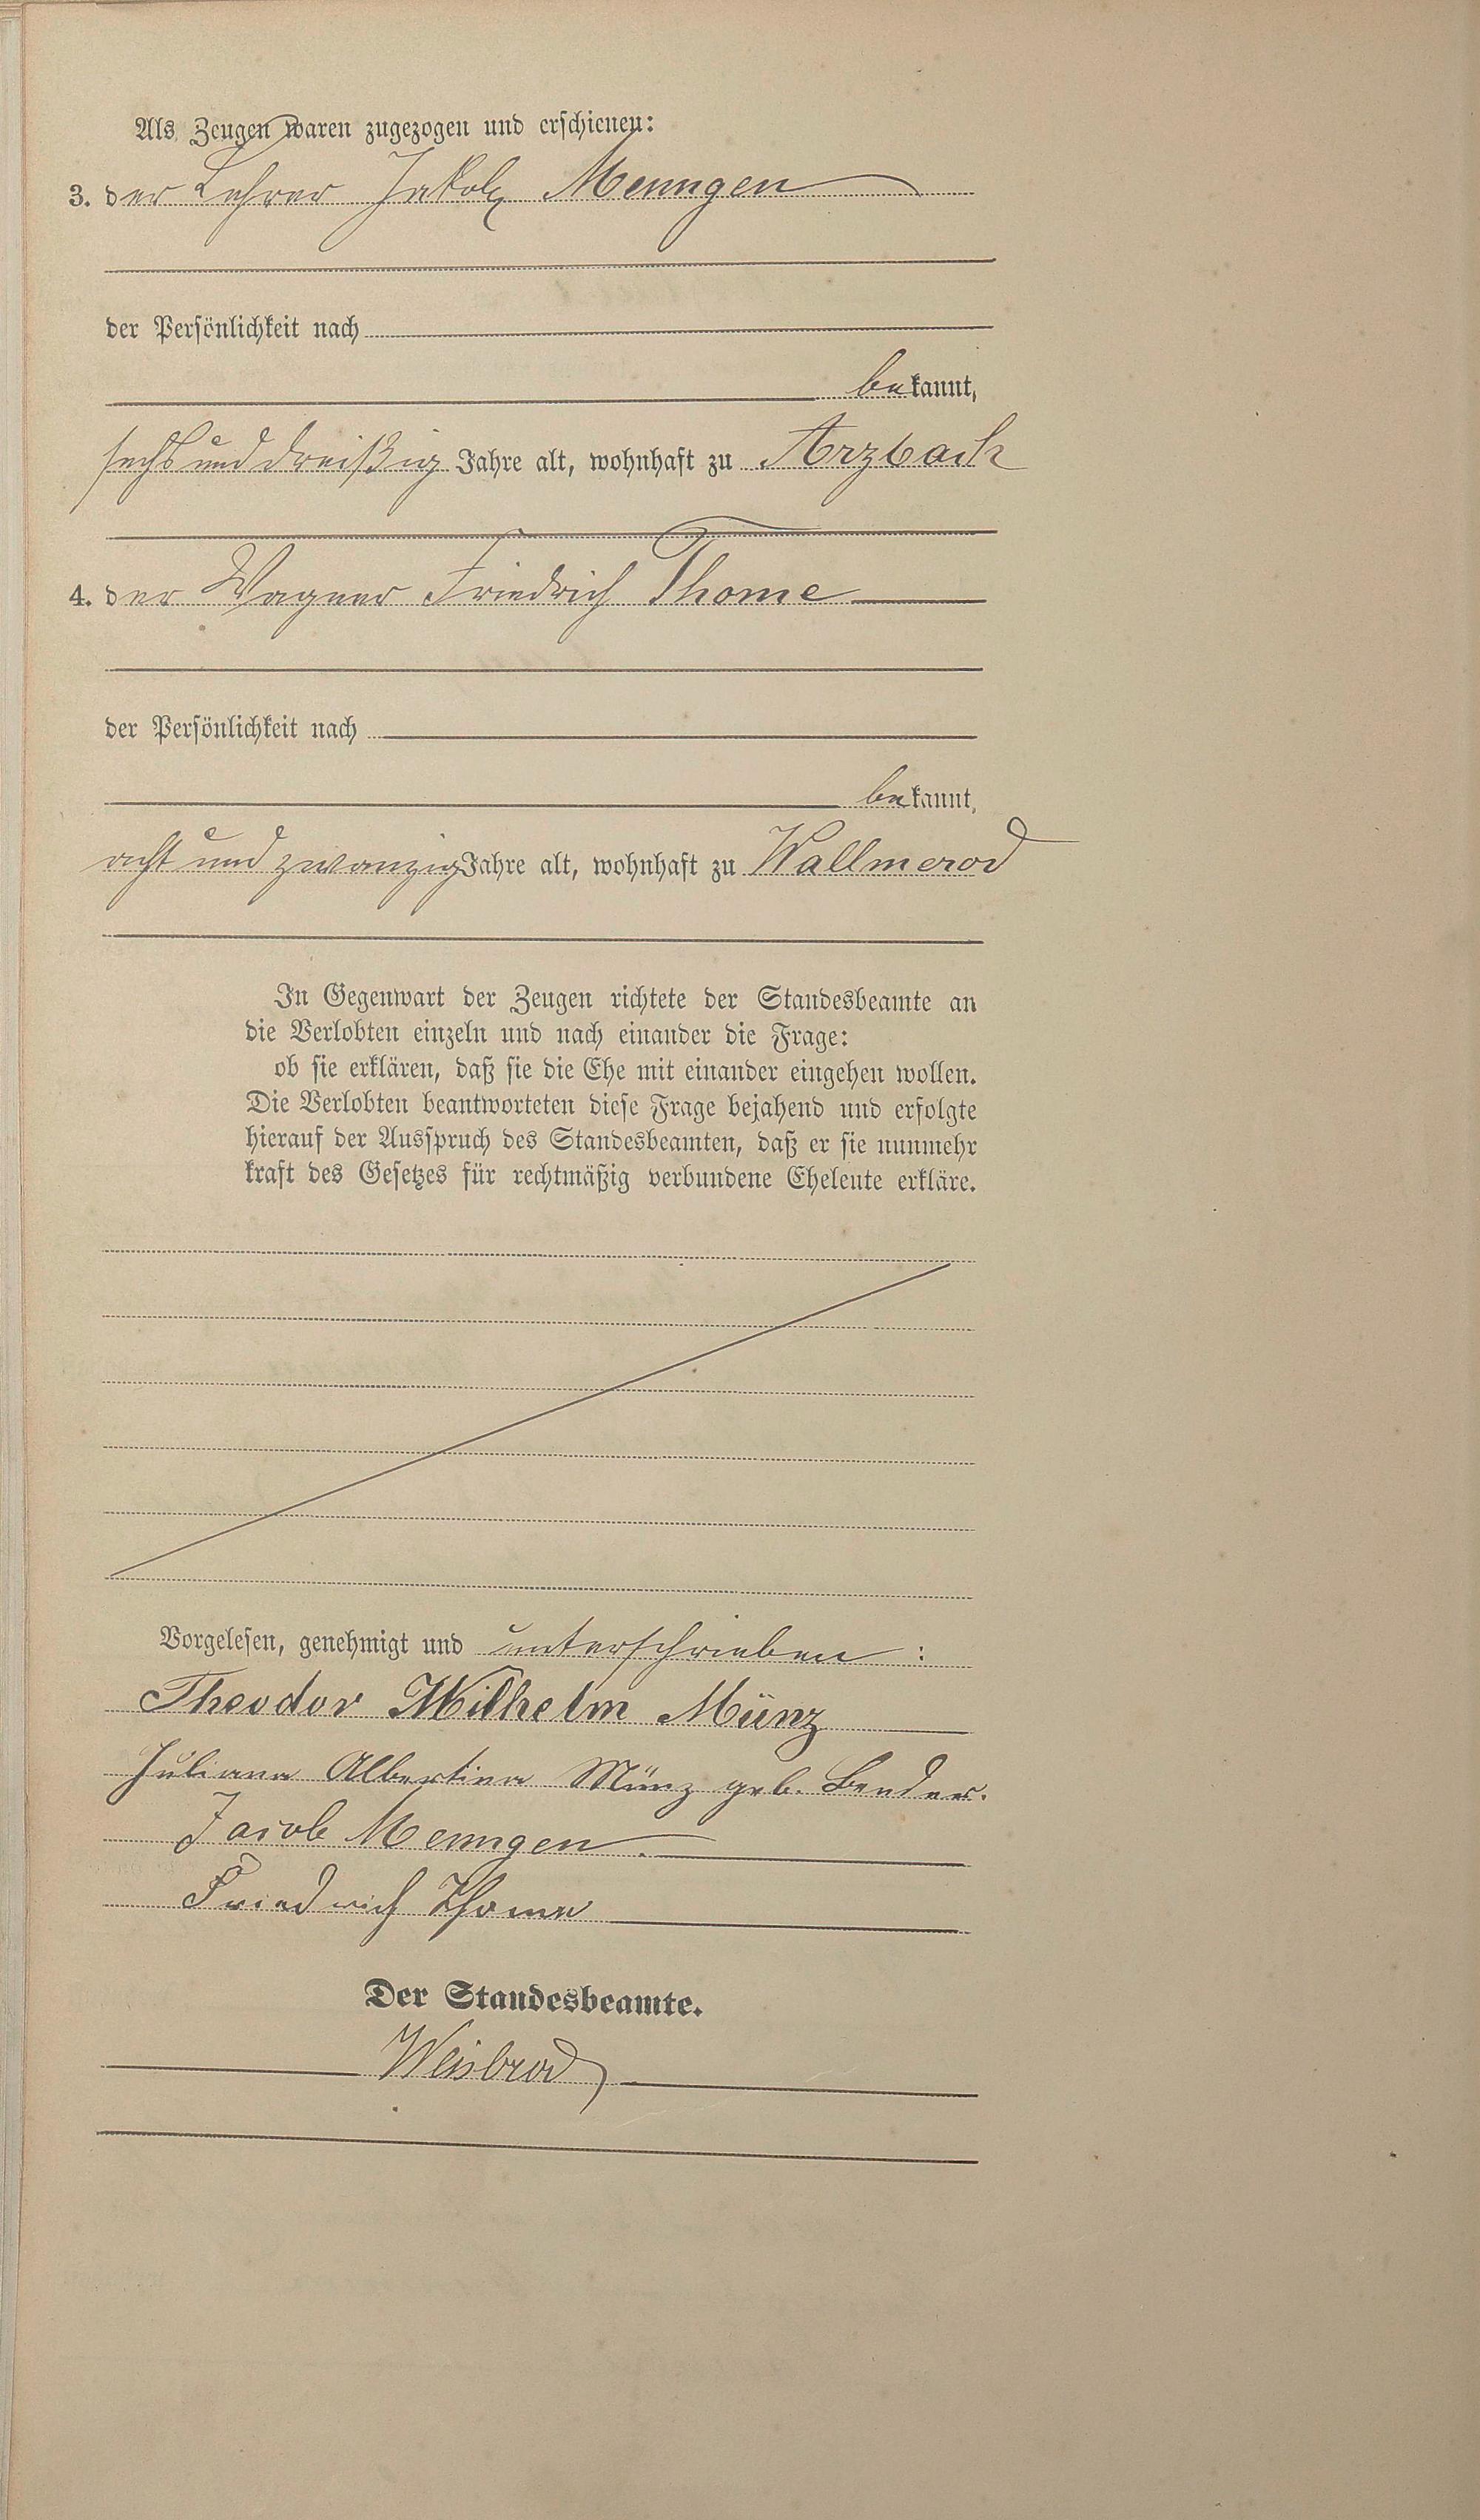 Als Zeugen waren zugezogen und erschienen:
3. der Lehrer Jakob Menngen
der Persönlichkeit nach
bekannt,
sechs und dreißig Jahre alt, wohnhaft zu Arzbach
4. der Wagner Friedrich Thome
der Persönlichkeit nach
bekannt,
acht und zwanzig Jahre alt, wohnhaft zu Wallmerod
In Gegenwart der Zeugen richtete der Standesbeamte an
die Verlobten einzeln und nach einander die Frage:
ob sie erklären, daß sie die Ehe mit einander eingehen wollen.
Die Verlobten beantworteten diese Frage bejahend und erfolgte
hierauf der Ausspruch des Standesbeamten, daß er sie nunmehr
kraft des Gesetzes für rechtmäßig verbundene Eheleute erkläre.
Vorgelesen, genehmigt und unterschrieben:
Theodor Wilhelm Münz
Juliana Albertina Münz geb. Bender.
Jacob Menngen.
Friedrich Thome
Der Standesbeamte.
Weisbrod